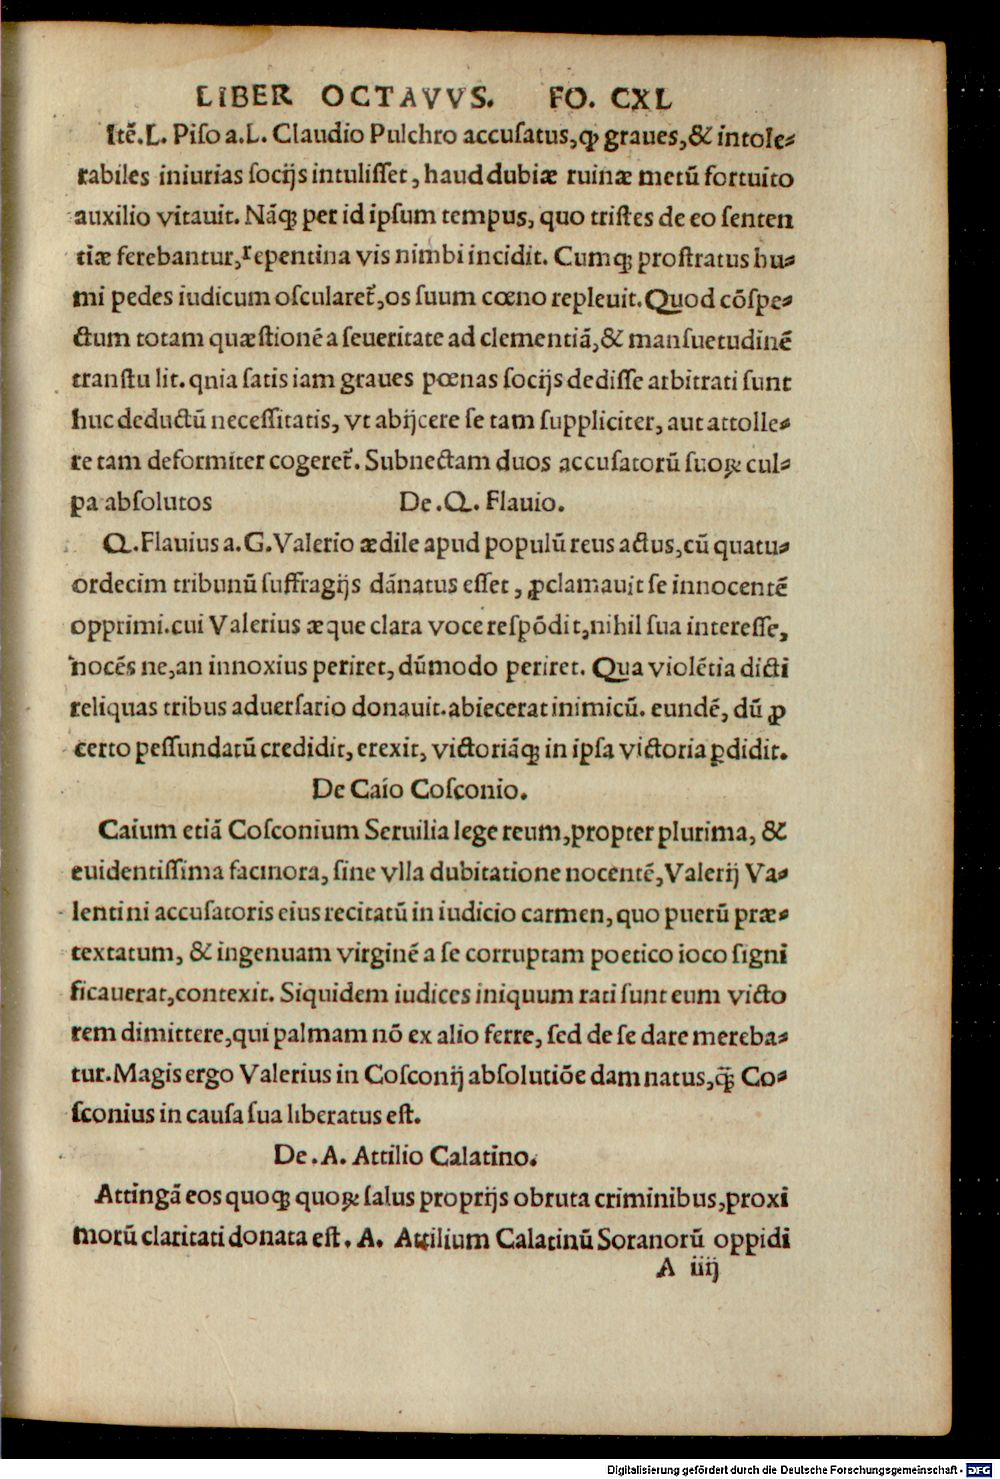 LIBER OCTAVVS. FO. CXL
Itē. L. Piſo a. L. Claudio Pulchro accuſatus, ꝙ graues, & intole⸗
rabiles iniurias ſocijs intuliſſet, haud dubiæ ruinæ metū fortuito
auxilio vitauit. Nāq; per id ipſum tempus, quo triſtes de eo ſenten
tiæ ferebantur, repentina vis nimbi incidit. Cumq; proſtratus hu⸗
mi pedes iudicum oſcularet᷑, os ſuum cœno repleuit. Quod cōſpe⸗
ctum totam quæſtionē a ſeueritate ad clementiā, & manſuetudinē
tranſtu lit. qnia ſatis iam graues pœnas ſocijs dediſſe arbitrati ſunt
huc deductū neceſſitatis, vt abijcere ſe tam ſuppliciter, aut attolle⸗
re tam deformiter cogeret᷑. Subnectam duos accuſatorū ſuoꝝ cul⸗
pa abſolutos De. Q. Flauio.
Q. Flauius a. G. Valerio ædile apud populū reus actus, cū quatu⸗
ordecim tribunū ſuffragijs dānatus eſſet, ꝓclamauit ſe innocentē
opprimi. cui Valerius æque clara voce reſpōdit, nihil ſua intereſſe,
nocēs ne, an innoxius periret, dūmodo periret. Qua violētia dicti
reliquas tribus aduerſario donauit. abiecerat inimicū. eundē, dū ꝓ
certo peſſundatū credidit, erexit, victoriāq; in ipſa victoria ꝑdidit.
De Caio Coſconio.
Caium etiā Coſconium Seruilia lege reum, propter plurima, &
euidentiſſima facinora, ſine vlla dubitatione nocentē, Valerij Va⸗
lentini accuſatoris eius recitatū in iudicio carmen, quo puerū præ⸗
textatum, & ingenuam virginē a ſe corruptam poetico ioco ſigni
ficauerat, contexit. Siquidem iudices iniquum rati ſunt eum victo
rem dimittere, qui palmam nō ex alio ferre, ſed de ſe dare mereba⸗
tur. Magis ergo Valerius in Coſconij abſolutiōe damnatus, q̄ꝫ Co⸗
ſconius in cauſa ſua liberatus eſt.
De. A. Attilio Calatino.
Attingā eos quoq; quoꝝ ſalus proprijs obruta criminibus, proxi
morū claritati donata eſt. A. Attilium Calatinū Soranorū oppidi
A iiij
Digitalisierung gefördert durch die Deutsche Forschungsgemeinschaft - DFG